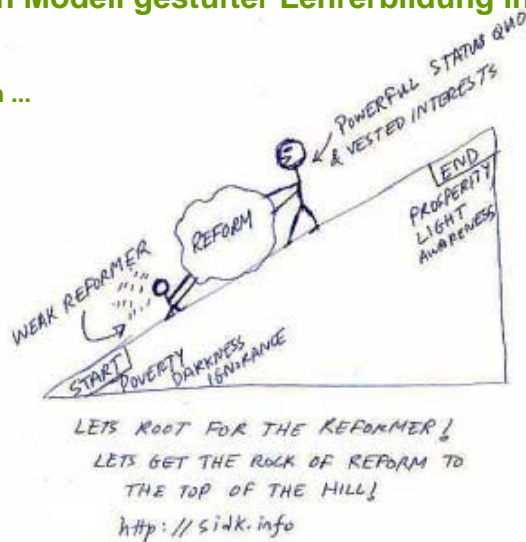 Modell gestufter Lehrerbildung
...
POWERFUL STATUS QUO
& VESTED INTERESTS
END
PROSPERITY
LIGHT
AWARENESS
REFORM
WEAK REFORMER
START
POVERTY
DARKNESS
IGNORANCE
LETS ROOT FOR THE REFORMER!
LETS GET THE ROCK OF REFORM TO
THE TOP OF THE HILL!
http://sidk.info